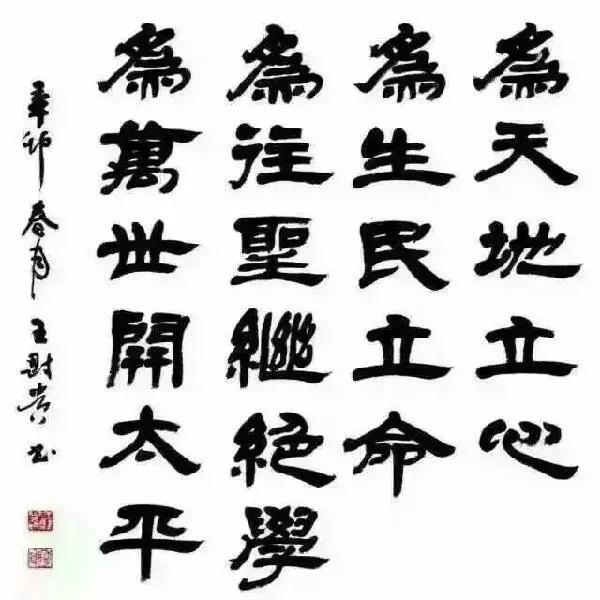 為天地立心
為生民立命
為往聖繼絕學
為萬世開太平
辛卯春月王財貴書